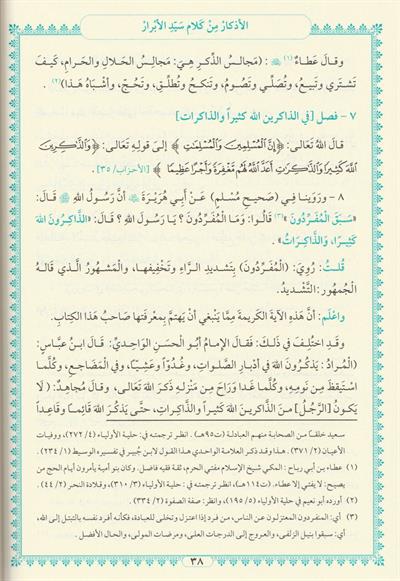 الأذكار مِنْ كَلامِ سَيِّدِ الأبْرارِ
وقال عَطاءٌ (١) ﵀ : (مَجالِسُ الذِّكرِ هِيَ: مَجالِسُ الحَلالِ والحَرامِ، كَيفَ
تَشتَرِي وتَبيعُ، وتُصَلِّي وتَصُومُ، وتَنكِحُ وتُطَلِّق، وتَحُجّ، وأشْباهُ هَذا)(٢) .
٧ - فصل [في الذاكرين الله كثيراً والذاكرات]
قالَ اللهُ تَعالى: ﴿إِنَّ ٱلْمُسْلِمِينَ وَٱلْمُسْلِمَٰتِ﴾ إلى قولِهِ تَعالى: ﴿وَٱلذَّٰكِرِينَ
ٱللَّهَ كَثِيرًا وَٱلذَّٰكِرَٰتِ أَعَدَّ ٱللَّهُ لَهُم مَّغْفِرَةً وَأَجْرًا عَظِيمًا﴾ [الأحزاب/ ٣٥] .
٨ - ورَوَينا فِي (صَحيحِ مُسلمٍ) عَنْ أبِي هُرَيْرَةَ ﵁ أنَّ رَسُولَ اللهِ ﷺ قالَ:
«سَبَقَ المُفَرِّدُونَ» (٣) قالُوا: وَمَا المُفَرِّدُونَ؟ يَا رَسولَ اللهِ ؟ قالَ: «الذَّاكِرُونَ اللهَ
كَثِيرًا، وَالذَّاكِرَاتُ» .
قُلتُ: رُوِيَ: (المُفَرِّدُونَ) بِتَشديدِ الرَّاءِ وتَخْفيفِها، والمَشهُورُ الَّذي قالهُ
الجُمهور: التَّشْديدُ.
واعْلَم: أنَّ هَذِهِ الآيةَ الكَريمةَ مِمَّا يَنْبَغِي أنْ يَهْتَمَّ بِمعْرِفَتِها صاحِبُ هَذا الكِتابِ.
وقَدِ اختُلِفَ في ذلِكَ: فَقالَ الإمامُ أبُو الحسَن الواحِدِيُّ: قالَ ابنُ عبَّاسٍ:
(المُرادُ: يَذكُرُونَ اللهَ في أدْبارِ الصَّلواتِ، وغُدُوّاً وعَشِيّاً، وفي المَضاجِعِ، وكُلَّما
استَيْقظَ مِن نَومِهِ، وكُلَّما غَدا وَرَاحَ مِن مَنْزِلِهِ ذَكرَ اللهَ تَعالى، وقالَ مُجاهِدٌ: (لا
يَكونُ [الرَّجُلُ] مِنَ الذَّاكرينَ اللهَ كَثيراً والذَّاكِراتِ، حتَّى يَذكُرَ اللهَ قائِماً وقاعِداً
سعيد خلقاً من الصحابة منهم العبادلة (ت٩٥هـ) . انظر ترجمته في: حلية الأولياء (٤/ ٢٧٢)، ووفيات
الأعيان (٢/ ٣٧١). هذا وقد ذكر العلامة الواحدي هذا القول لابن جُبير في تفسيره الوسيط (١/ ٢٣٤) .
(١) عطاء بن أبي رباح: المكي شيخ الإسلام مفتي الحرم، ثقة فقيه فاضل. وكان بنو أمية يأمرون أيام الحج من
يصيح: لا يفتي إلا عطاء. (ت١١٤هـ)، انظر ترجمته في: حلية الأولياء (٣/ ٣١٠)، وقلادة النحر (٢/ ٤٤)
(٢) أورده أبو نعيم في حلية الأولياء (٥/ ١٩٥)، وانظر: صفة الصفوة (٢/ ٣٣٤).
(٣) أي: المنفردون المعتزلون عن الناس، من فرد إذا اعتزل وتخلى للعبادة، فكأنه أفرد نفسه بالتبتل إلى الله،
أي: سبقوا بنيل الزلفى، والعروج إلى الدرجات العلى، ومرضات المولى، والحال الأفضل .
٣٨